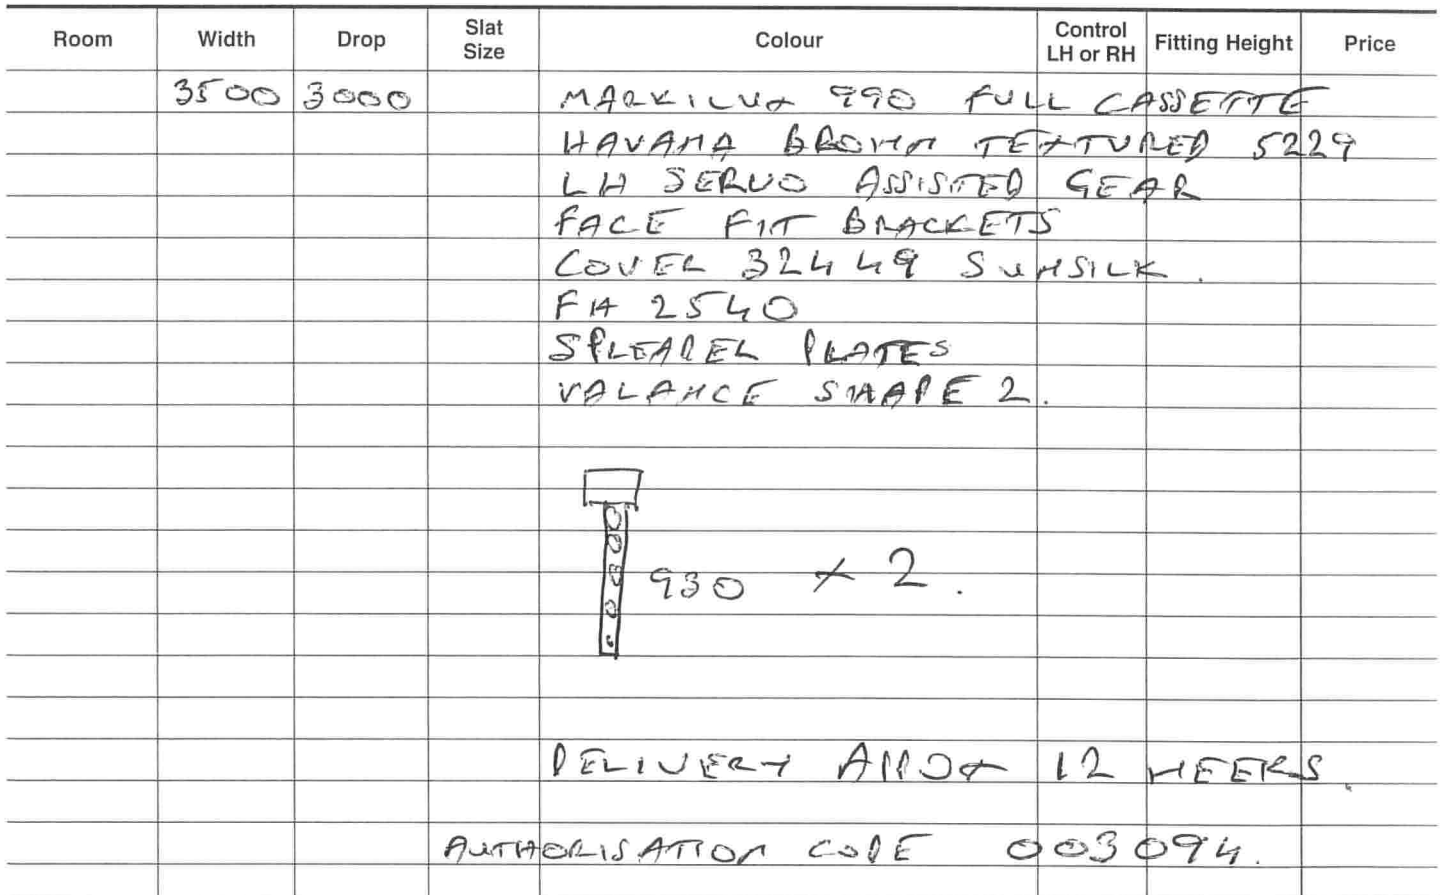 Room Width Drop Slat Size Colour Control LH or RH Fitting Height Price
3500 3000 MARKILUX 990 FULL CASSETTE
HAVANA BROWN TEXTURED 5229
LH SERVO ASSISTED GEAR
FACE FIT BRACKETS
COVER 32449 SUNSILK.
FH 2540
SPREADER PLATES
VALANCE SHAPE 2.
930 x 2.
DELIVERY APPOX 12 WEEKS.
AUTHORISATION CODE 003094.